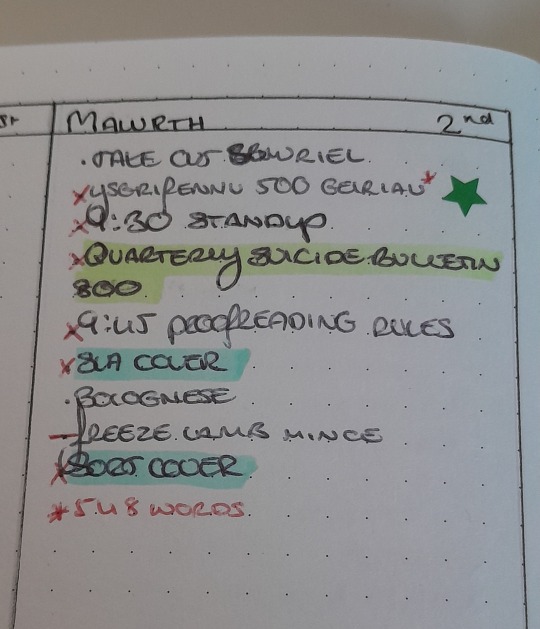 st
MAWRTH 2nd
. TAKE OUT SBWRIEL
x YSGRIFENNU 500 GEIRIAU*
x 9:30 STANDUP
x QUARTERLY SUICIDE BULLETIN
800
x 9:45 PROOFREADING RULES
x SLA COVER
. BOLOGNESE
— FREEZE LAMB MINCE
x COVER
* 548 WORDS